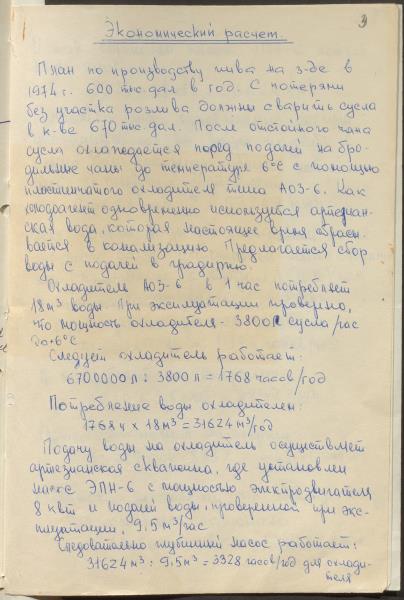 3
Экономический расчет.
План по производству пива на з-де в
1974 г. 600 тыс. дал. в год. С потерями
без участка розлива должны сварить сусла
в к-ве 670 тыс. дал. После отстойного чана
сусло охлаждается перед подачей на бро-
дильные чаны до температуре 6°С с помощью
пластинчатого охладителя типа АОЗ-6. Как
хладоагент одновременно используется артезиан-
ская вода, которая настоящее время сбрасы-
вается в канализацию. Предлагается сбор
воды с подачей в градирню.
Охладитель АОЗ-6 в 1 час потребляет
18 м³ воды. При эксплуатации проверено,
что мощность охладителя - 3800 л сусла/час
до +6°С
Следует охладитель работает:
6700000 л : 3800 л = 1768 часов/год
Потребление воды охладителем:
1768 ч x 18 м³ = 31624 м³/год
Подачу воды на охладитель осуществляет
артезианская скважина, где установлен
насос ЭПН-6 с мощностью электродвигателя
8 квт и подачей воды, проверенной при экс-
плуатации, 9,5 м³/час
Следовательно глубинный насос работает:
31624 м³ : 9,5 м³ = 3328 часов/год для охлади-
теля